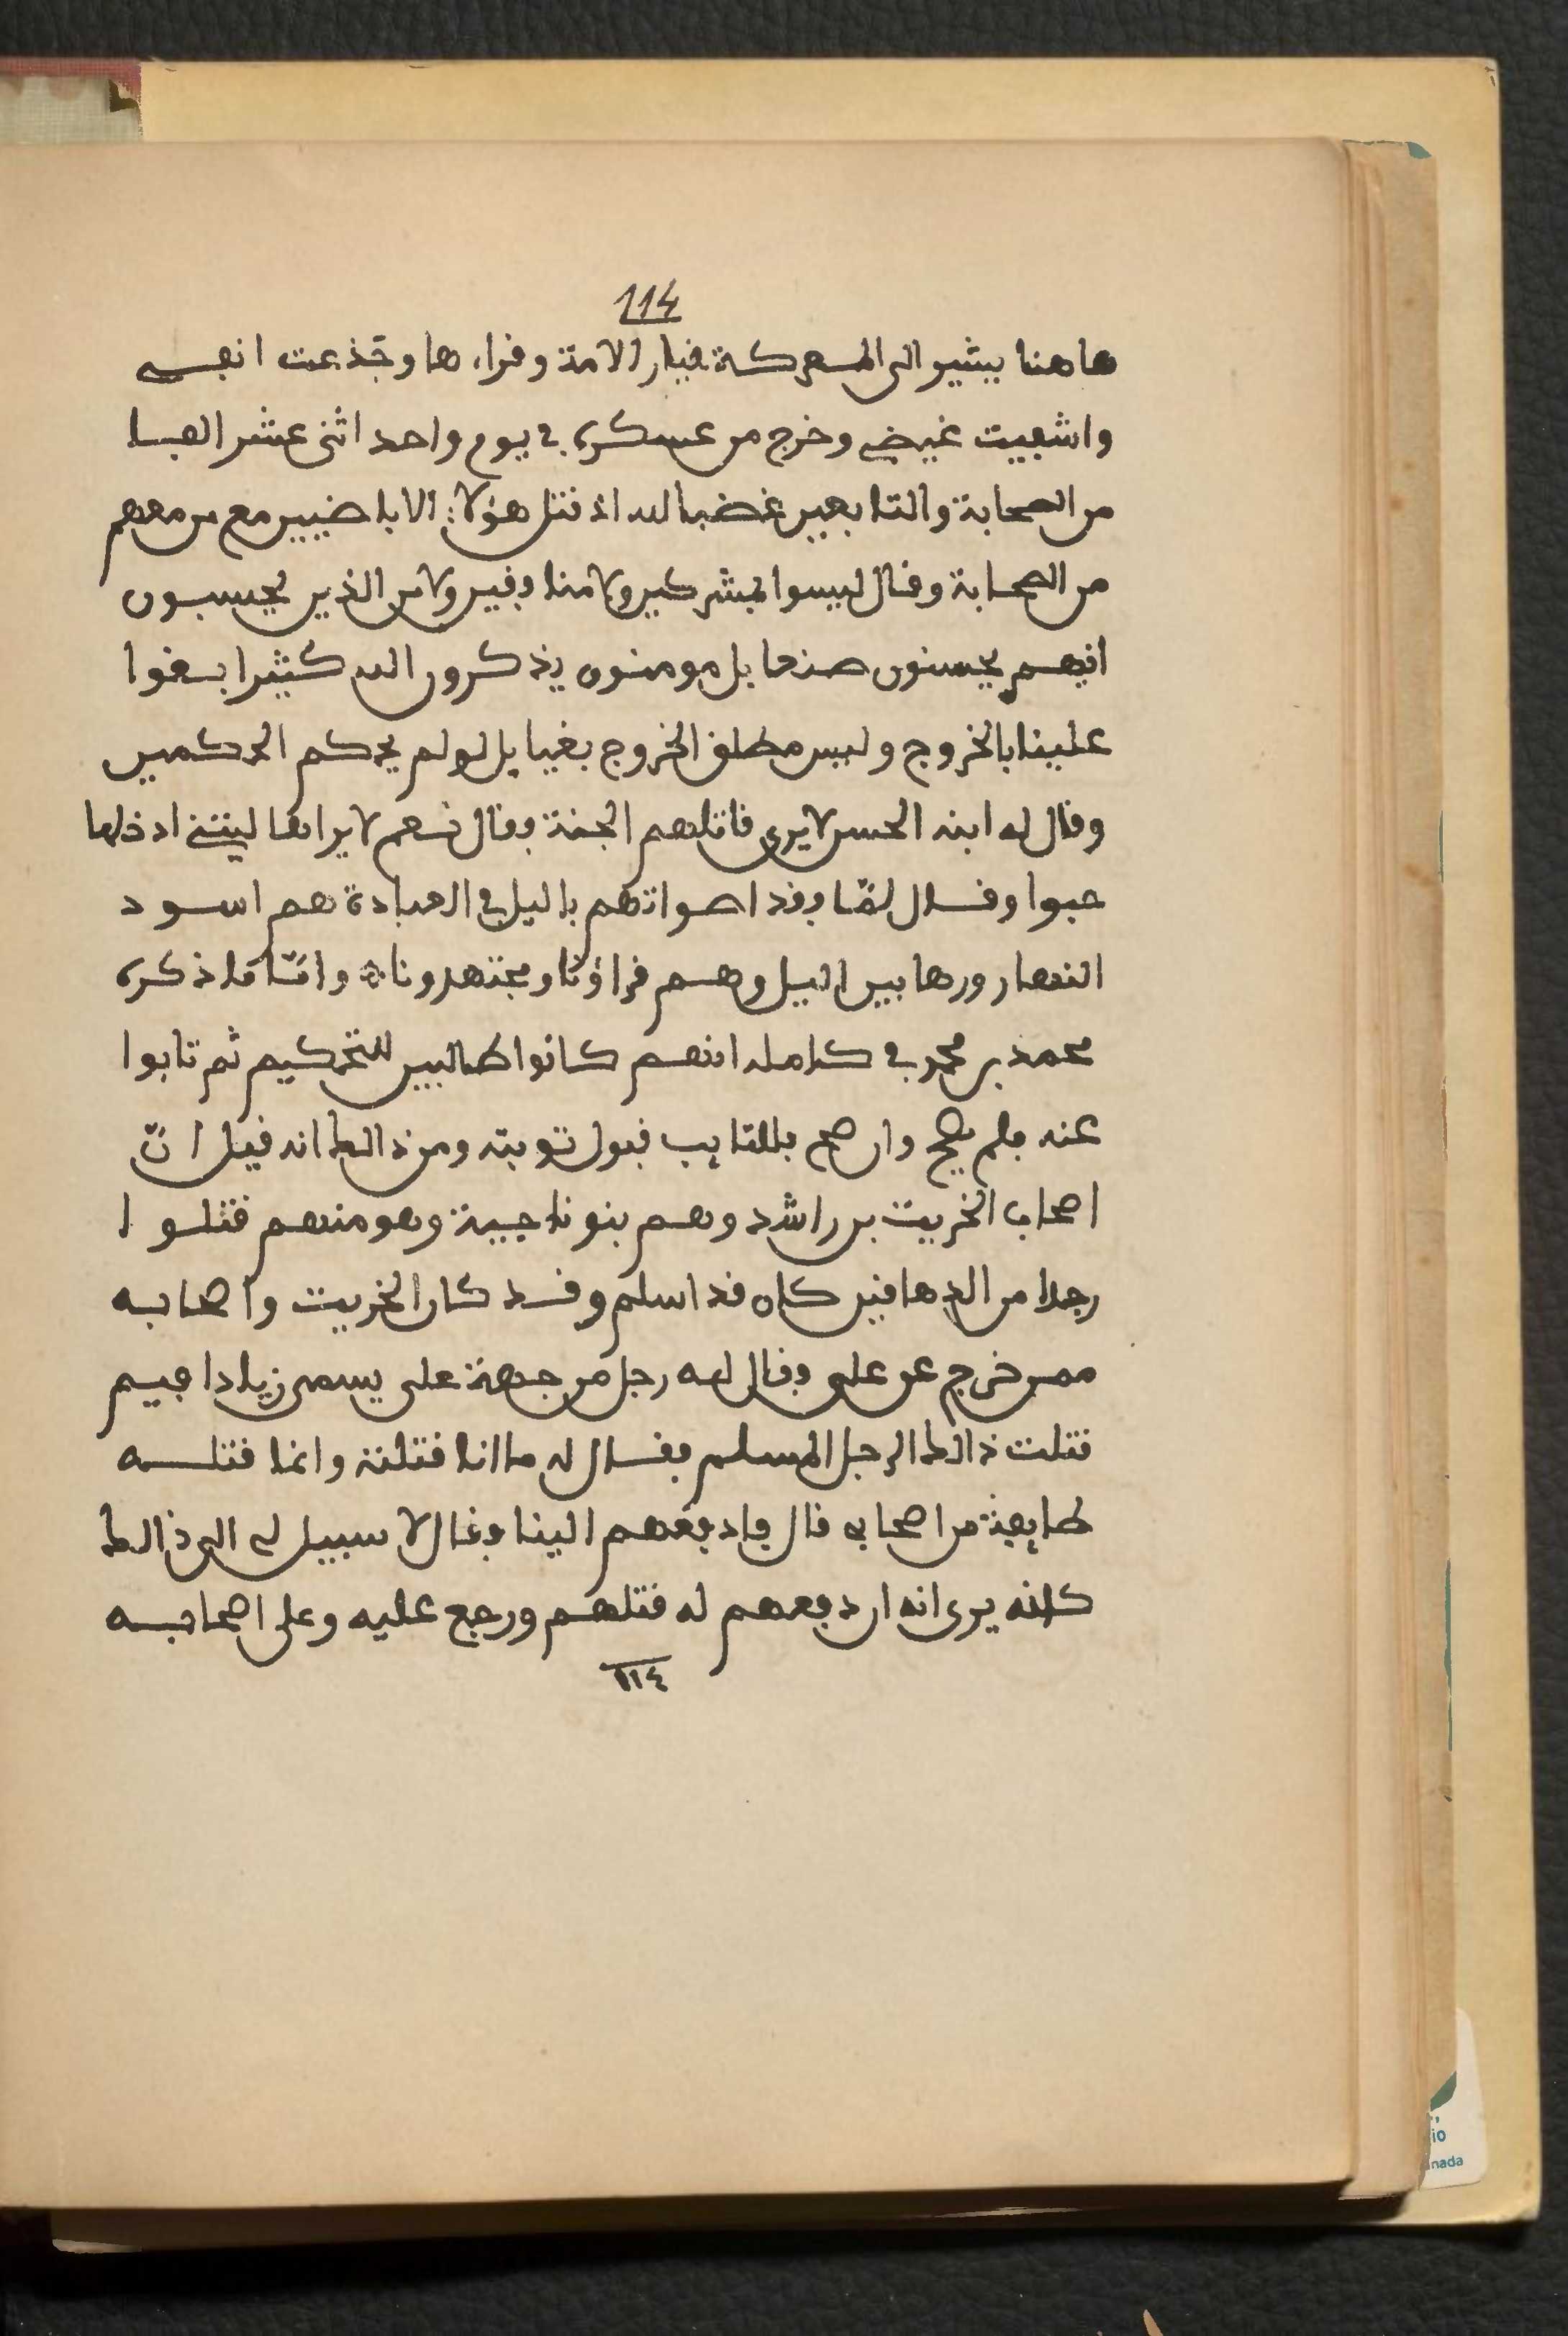 114
هاهنا يشير الى المعركة خيار الامة وقراءها وجذعت انفى
واشفيت غيضى وخرج من عسكره فى يوم واحد اثنى عشر الفا
من الصحابة والتابعين غضبا لله اذ قتل هؤلاء الاباضيين مع من معهم
من الصحابة وقال ليسوا بمشركين ولا منافقين ولا من الذين يحسبون
انهم يحسنون صنعا بل مومنون يذكرون الله كثيرا بغوا
علينا بالخروج وليس مطلق الخروج بغيا بل لو لم يحكم الحكمين
وقال له ابنه الحسن لا يرى قاتلهم الجنة فقال نعم لا يراها ليتنى ادخلها
حبوا وقال لمّا فقد اصواتهم باليل فى العبادة هم اسود
النهار ورهابين اليل وهم قراؤنا ومجتهدونا وامّا ما ذكره
محمد بن محمد فى كامله انهم كانوا طالبين للتحكيم ثم تابوا
عنه فلم يصح وان صح فللتايب قبول توبته ومن ذالك انه قيل انّ
اصحاب الخريت بن راشد وهم بنو ناجية وهو منهم قتلوا
رجلا من الدهاقين كان قد اسلم وقد كان الخريت واصحابه
ممن خرج عن على فقال له رجل من جهة على يسمى زيادا فيم
قتلت ذالك الرجل المسلم فقال له ما انا قتلته وانما قتله
طايفة من اصحابى قال فادفعهم الينا فقال لا سبيل لى الى ذالك
كانه يرى انه ان دفعهم له قتلهم ورجع عليه وعلى اصحابه
١١٤